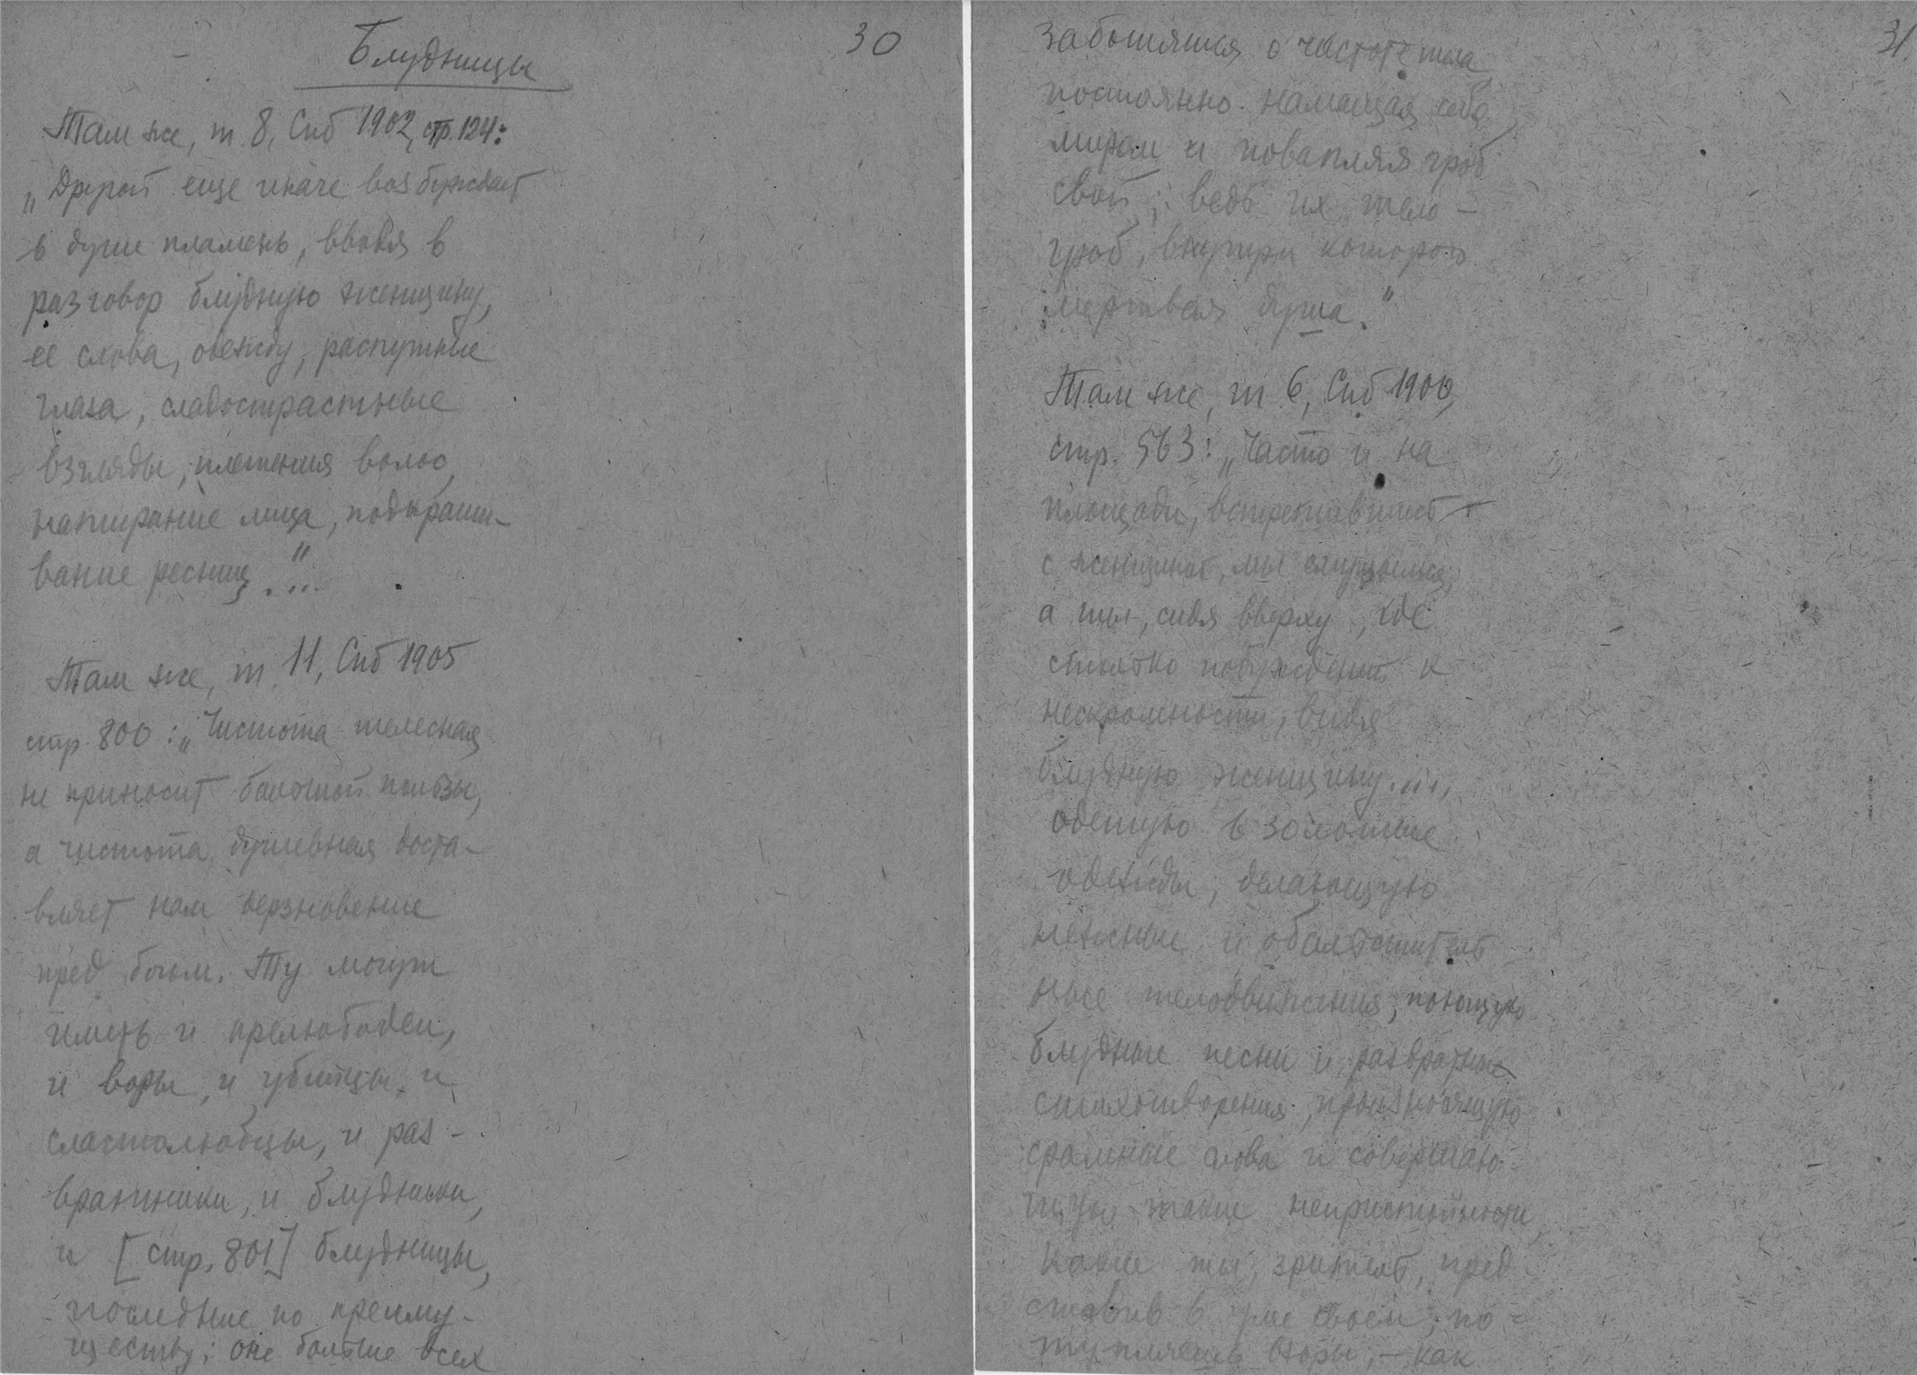 30
Блудницы
Там же, т. 8, Спб 1902, стр. 124:
„Другой еще иначе возбуждает
в душе пламень, вводя в
разговор блудную женщину,
ее слова, одежду, распутные
глаза, сладострастные
взгляды, плетения волос,
натирание лица, подкраши-
вание ресниц."...
Там же, т. 11, Спб 1905
стр. 800: „Чистота телесная
не приносит большой пользы,
а чистота душевная доста-
вляет нам дерзновение
пред богом. Ту могут
иметь и прелюбодеи,
и воры, и убийцы, и
сластолюбцы, и раз-
вратники, и блудники,
и [стр. 801] блудницы,
последние по преиму-
ществу; оне больше всех
31.
заботятся о чистоте тела,
постоянно намащая себя
миром и повапляя гроб
свой; ведь их тело –
гроб, внутри которого
мертвая душа."
Там же, т. 6, Спб 1900,
стр. 563: „Часто и на
площади, встретившись
с женщиной, мы смущаемся,
а ты, сидя вверху, где
столько побуждений к
нескромности, видя
блудную женщину....,
одетую в золотые
одежды, делающую
нежные и обольститель
ные телодвижения, поющую
блудные песни и развратные
стихотворения, произносящую
срамные слова и совершаю-
щую такие непристойности,
какие ты, зритель, пред
ставив в уме своем, по-
тупляешь взоры, – как